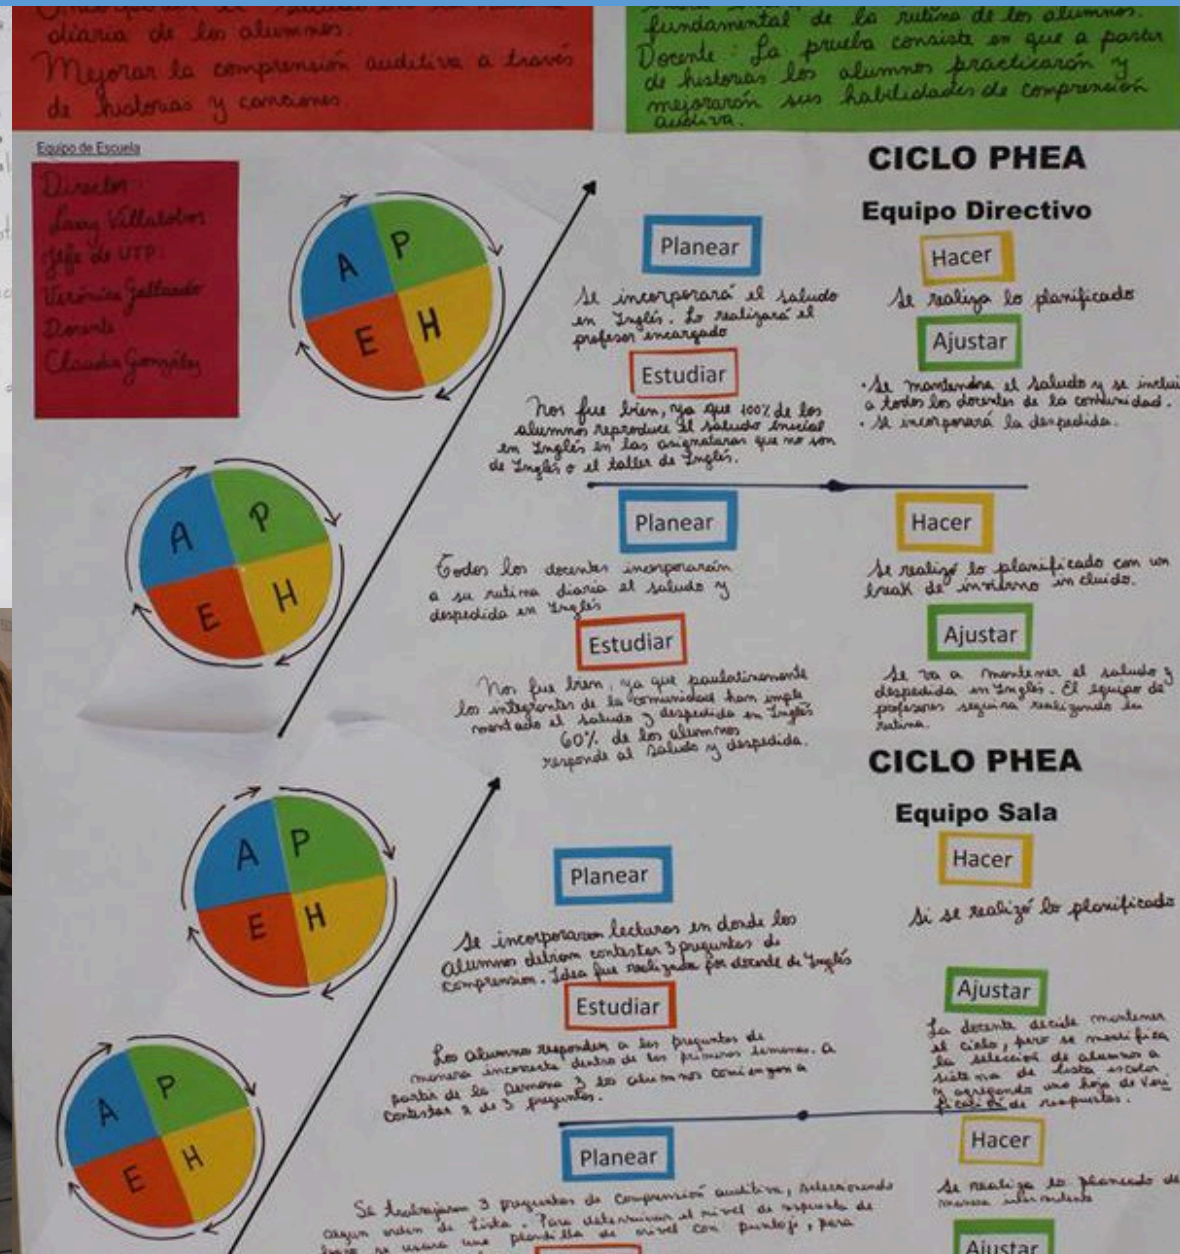 diaria de los alumnos.
Mejorar la comprensión auditiva a través
de historias y canciones.
fundamental de la rutina de los alumnos.
Docente: La prueba consiste en que a partir
de historias los alumnos practicarán y
mejorarán sus habilidades de comprensión
auditiva.
Equipo de Escuela
Director:
Larry Villalobos
Jefe de UTP:
Verónica Gallardo
Docente
Claudia González
A P
E H
CICLO PHEA
Equipo Directivo
Planear
Se incorporará el saludo
en Inglés. Lo realizará el
profesor encargado
Hacer
Se realiza lo planificado
Estudiar
Nos fue bien, ya que 100% de los
alumnos reproduce el saludo inicial
en Inglés en las asignaturas que no son
de Inglés o el taller de Inglés.
Ajustar
• Se mantendra el saludo y se inclui
a todos los docentes de la comunidad.
• Se incorporará la despedida.
A P
E H
Planear
Todos los docentes incorporarán
a su rutina diaria el saludo y
despedida en Inglés
Hacer
Se realizó lo planificado con un
break de invierno incluido.
Estudiar
Nos fue bien, ya que paulatinamente
los integrantes de la comunidad han imple
mentado el saludo y despedida en Inglés
60% de los alumnos
responde al saludo y despedida.
Ajustar
Se va a mantener el saludo y
despedida en Inglés. El equipo de
profesores seguira realizando la
rutina.
CICLO PHEA
Equipo Sala
A P
E H
Planear
Se incorporaron lecturas en donde los
alumnos debian contestar 3 preguntas de
comprension. Idea fue realizada por docente de Inglés
Hacer
Si se realizó lo planificado
Estudiar
Los alumnos responden a las preguntas de
manera incorrecta dentro de las primeras semanas. A
partir de la semana 3 los alumnos comienzan a
contestar 2 de 3 preguntas.
Ajustar
La docente decide mantener
el ciclo, pero se modifica
la selección de alumnos a
sistema de lista escolar
y agregando una hoja de veri
ficación de respuestas.
A P
E H
Planear
Se trabajaron 3 preguntas de comprensión auditiva, seleccionando
algun orden de lista. Para determinar el nivel de respuesta de
se usara una plantilla de nivel con puntaje, para
Hacer
Se realiza lo planeado de
manera
Ajustar